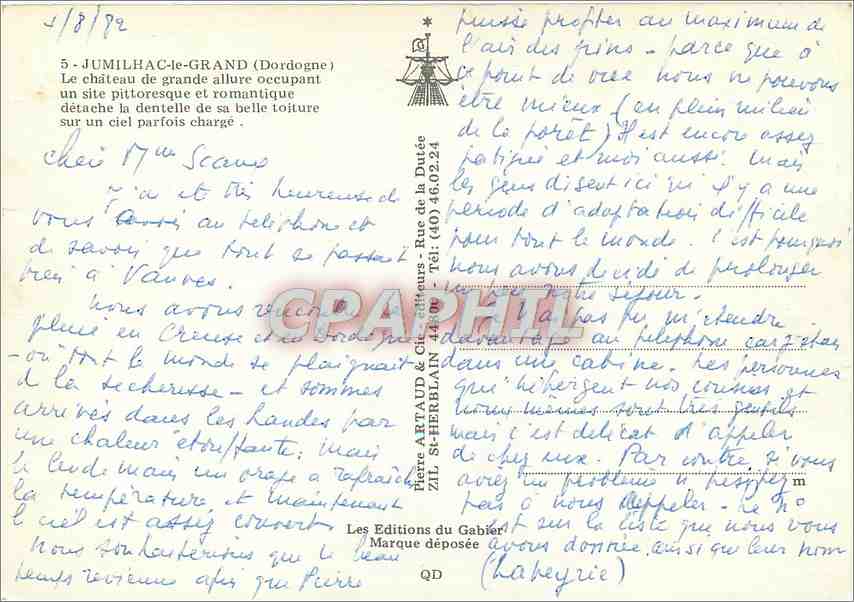 1/8/82
5 - JUMILHAC-le-GRAND (Dordogne)
Le château de grande allure occupant
un site pittoresque et romantique
détache la dentelle de sa belle toiture
sur un ciel parfois chargé .
Mme
J'ai été très heureuse de
vous au telephone et
de savoir que tout se passait
bien à Vanves.
Nous avons rencontré la
pluie en Creuse et en Dordogne
- où tout le monde se plaignait
d la secheresse - et sommes
arrivés dans les Landes par
une chaleur étouffante; mais
le lendemain un orage a rafraichi
la température et maintenant
le ciel est assez couvert
Nous souhaiterions que le beau
temps revienne afin que Pierre
puisse profiter au maximum de
l'air des pins - parce que à
ce point de vue nous ne pouvons
être mieux (en plein milieu
de la forêt) Il est encore assez
fatigué et moi aussi. Mais
les gens disent ici qu'il y a une
période d'adaptation difficile
pour tout le monde. C'est pourquoi
nous avons decidé de prolonger
un peu notre séjour.
Je n'ai pas pu m'étendre
davantage au telephone car j'étais
dans une cabine. Les personnes
qui hébergent nos cousins et
nous mêmes sont très gentils
mais c'est délicat d'appeler
de chez eux. Par contre si vous
aviez un problème n'hésitez
pas à nous appeler - Le n°
est sur la liste que nous vous
avons donnée, ainsi que leur nom
(Labeyrie)
Pierre ARTAUD & Cie éditeurs - Rue de la Dutée
ZIL St-HERBLAIN 44800 - Tél: (40) 46.02.24
CPAPHIL
m
Les Editions du Gabier
Marque déposée
QD